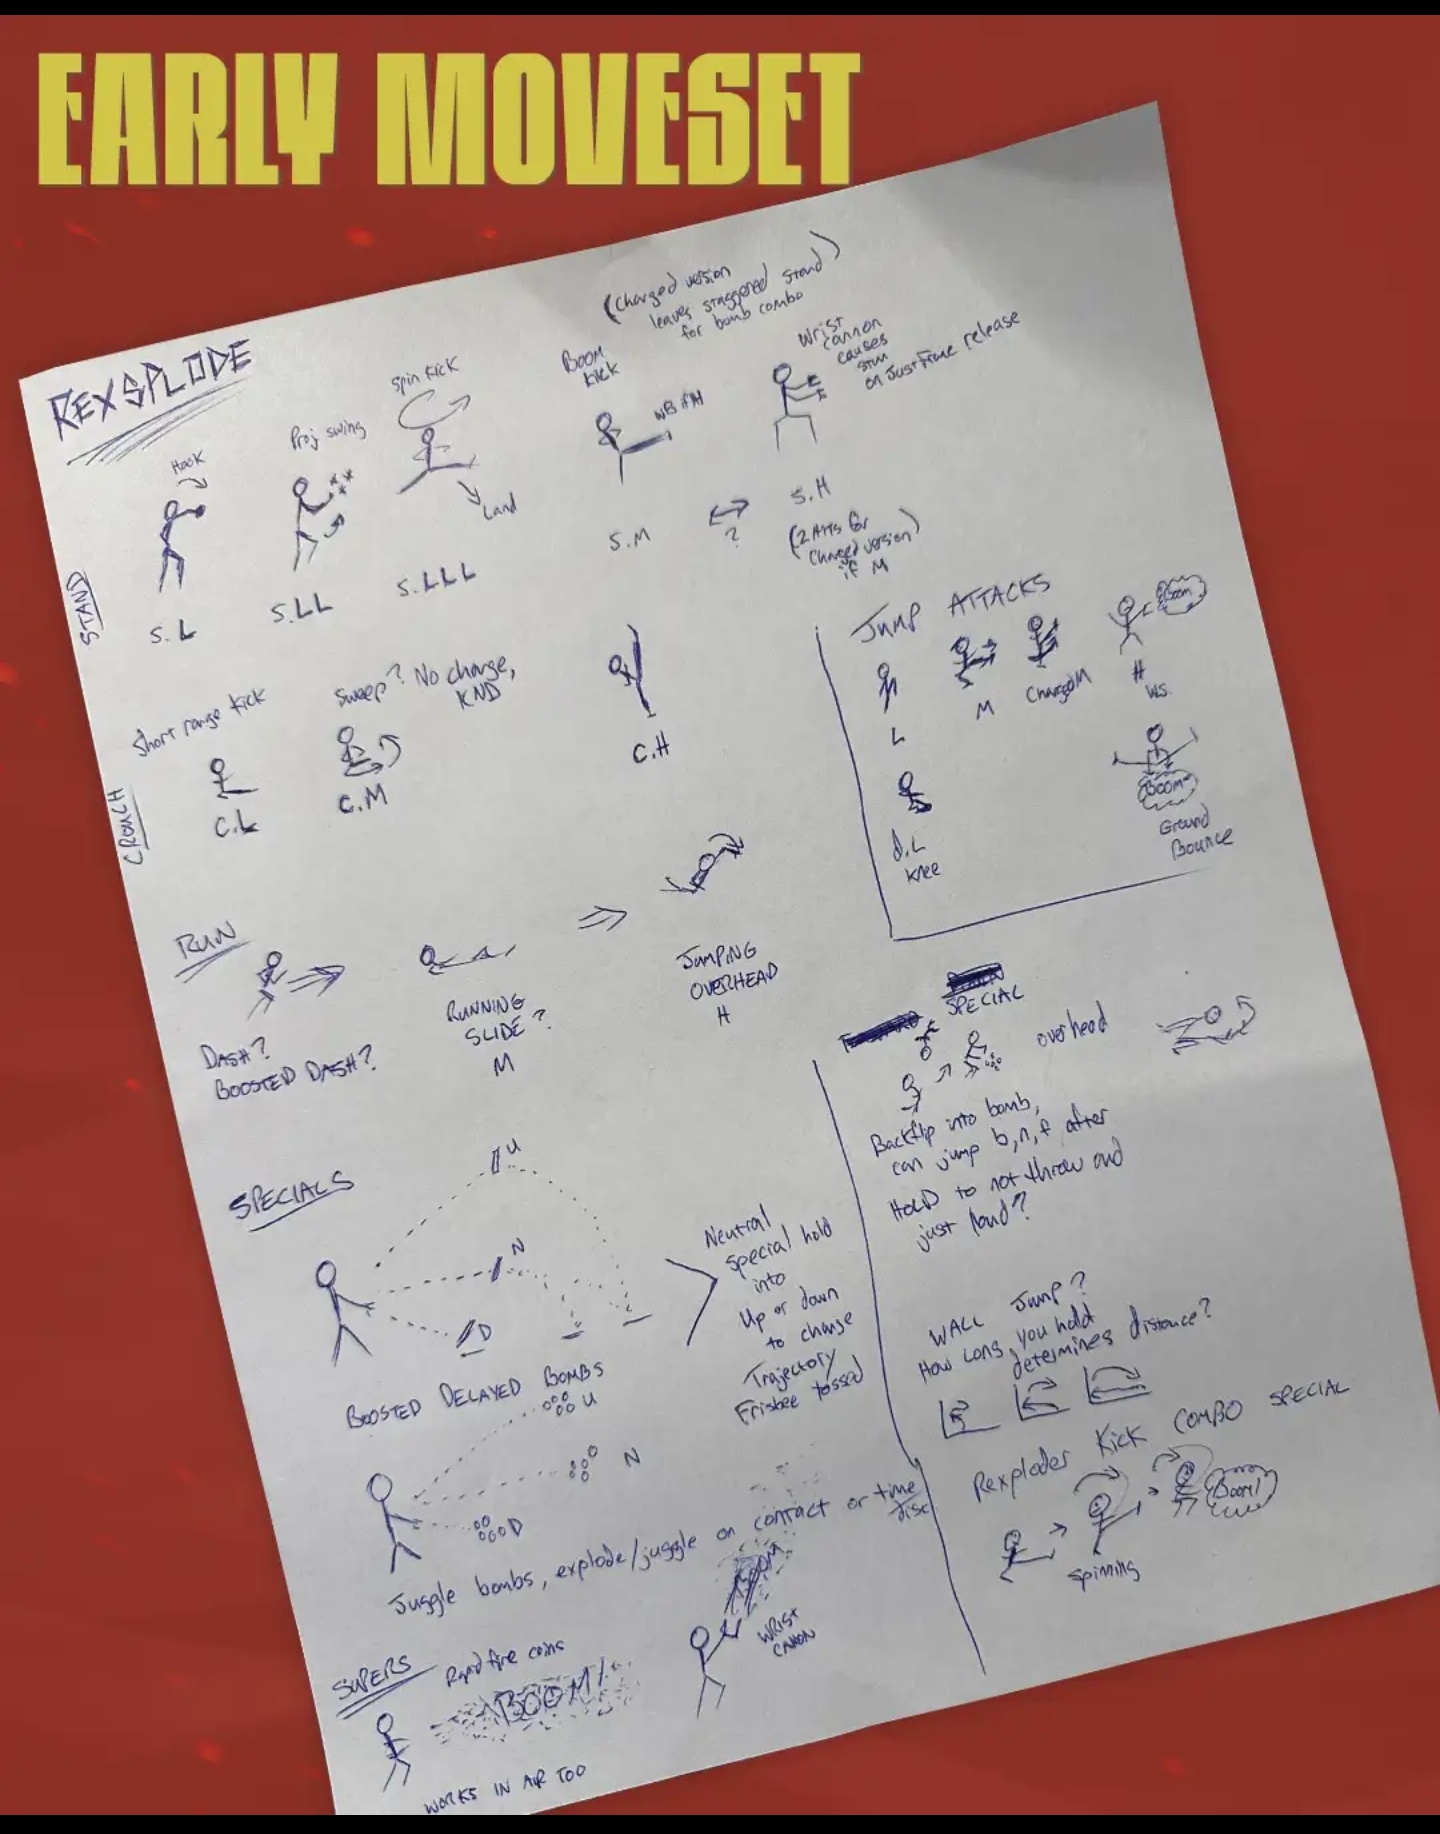 EARLY MOVESET
REXSPLODE
(Charged version
leaves staggered stand)
for bomb combo
Hook
Proj swing
spin kick
Land
Boom
kick
WB if H
Wrist
cannon
causes
stun
on Just Frame release
STAND
S.L
S.LL
S.LLL
S.M
?
S.H
(2 Hits for
Charged version)
if M
CROUCH
Short range kick
C.L
Sweep? No charge,
KND
C.M
C.H
JUMP ATTACKS
L
M
Charged M
Boom
H
WS.
d.L
Knee
BOOM
Ground
Bounce
RUN
DASH?
BOOSTED DASH?
RUNNING
SLIDE?
M
JUMPING
OVERHEAD
H
SPECIALS
U
N
D
Neutral
Special hold
into
Up or down
to change
Trajectory
Frisbee tossed
BOOSTED DELAYED BOMBS
U
N
D
Juggle bombs, explode/juggle on contact or time
disc
SUPERS
Rapid fire coins
BOOM!
WORKS IN AIR TOO
BOOM
WRIST
CANON
SPECIAL
overhead
Backflip into bomb,
can jump b,n,f after
HOLD to not throw and
just land?
WALL Jump?
How long you hold
determines distance?
Rexploder Kick COMBO SPECIAL
Spinning
Boom!